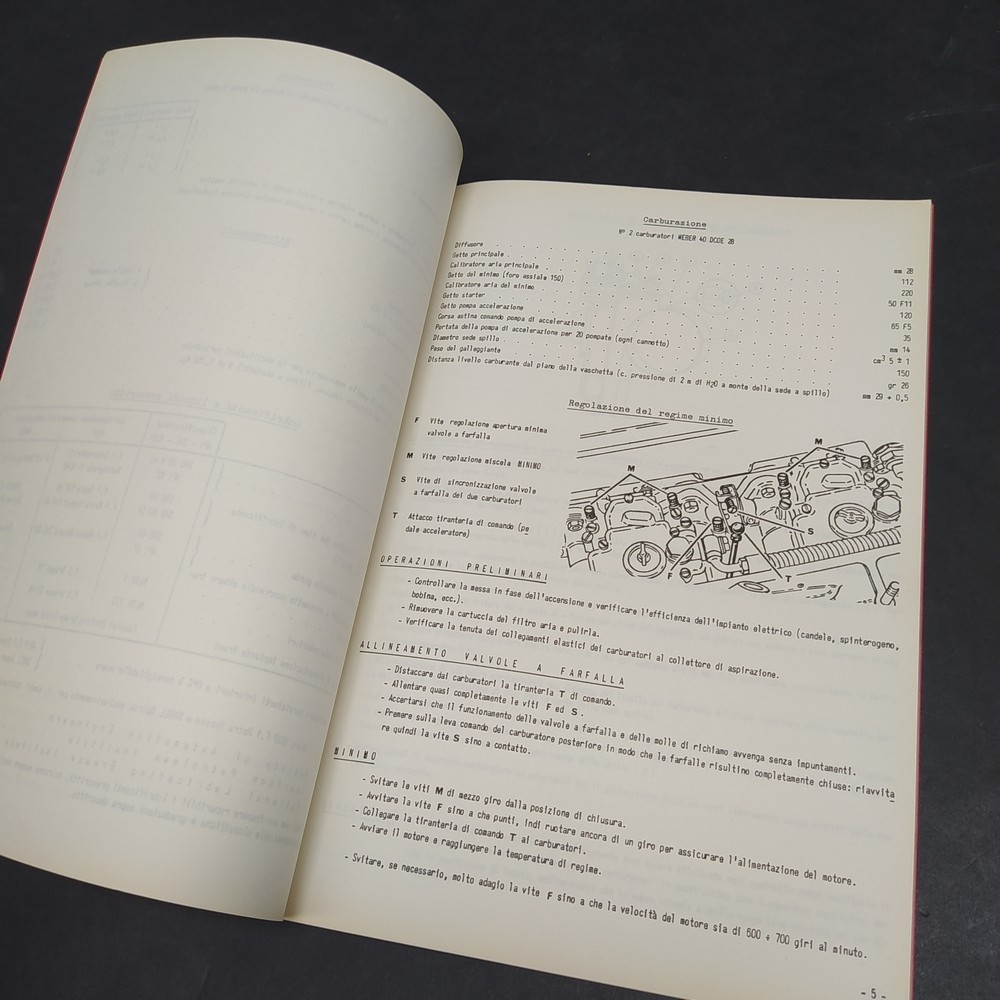 Carburazione
N° 2 carburatori WEBER 40 DCOE 28
Diffusore mm 28
Getto principale 112
Calibratore aria principale 220
Getto del minimo (foro assiale 150) 50 F11
Calibratore aria del minimo 120
Getto starter 65 F5
Getto pompa accelerazione 35
Corsa astina comando pompa di accelerazione mm 14
Portata della pompa di accelerazione per 20 pompate (ogni cannotto) cm³ 5 ± 1
Diametro sede spillo 150
Peso del galleggiante gr 26
Distanza livello carburante dal piano della vaschetta (c. pressione di 2 m di H2O a monte della sede a spillo) mm 29 + 0,5
Regolazione del regime minimo
F Vite regolazione apertura minima
valvole a farfalla
M Vite regolazione miscela MINIMO
S Vite di sincronizzazione valvole
a farfalla dei due carburatori
T Attacco tiranteria di comando (pe
dale acceleratore)
M
M
S
F
T
OPERAZIONI PRELIMINARI
- Controllare la messa in fase dell'accensione e verificare l'efficienza dell'impianto elettrico (candele, spinterogeno,
bobina, ecc.).
- Rimuovere la cartuccia del filtro aria e pulirla.
- Verificare la tenuta dei collegamenti elastici dei carburatori al collettore di aspirazione.
ALLINEAMENTO VALVOLE A FARFALLA
- Distaccare dai carburatori la tiranteria T di comando.
- Allentare quasi completamente le viti F ed S.
- Accertarsi che il funzionamento delle valvole a farfalla e delle molle di richiamo avvenga senza impuntamenti.
- Premere sulla leva comando del carburatore posteriore in modo che le farfalle risultino completamente chiuse: riavvita
re quindi la vite S sino a contatto.
MINIMO
- Svitare le viti M di mezzo giro dalla posizione di chiusura.
- Avvitare la vite F sino a che punti, indi ruotare ancora di un giro per assicurare l'alimentazione del motore.
- Collegare la tiranteria di comando T ai carburatori.
- Avviare il motore e raggiungere la temperatura di regime.
- Svitare, se necessario, molto adagio la vite F sino a che la velocità del motore sia di 600 ÷ 700 giri al minuto.
- 5 -